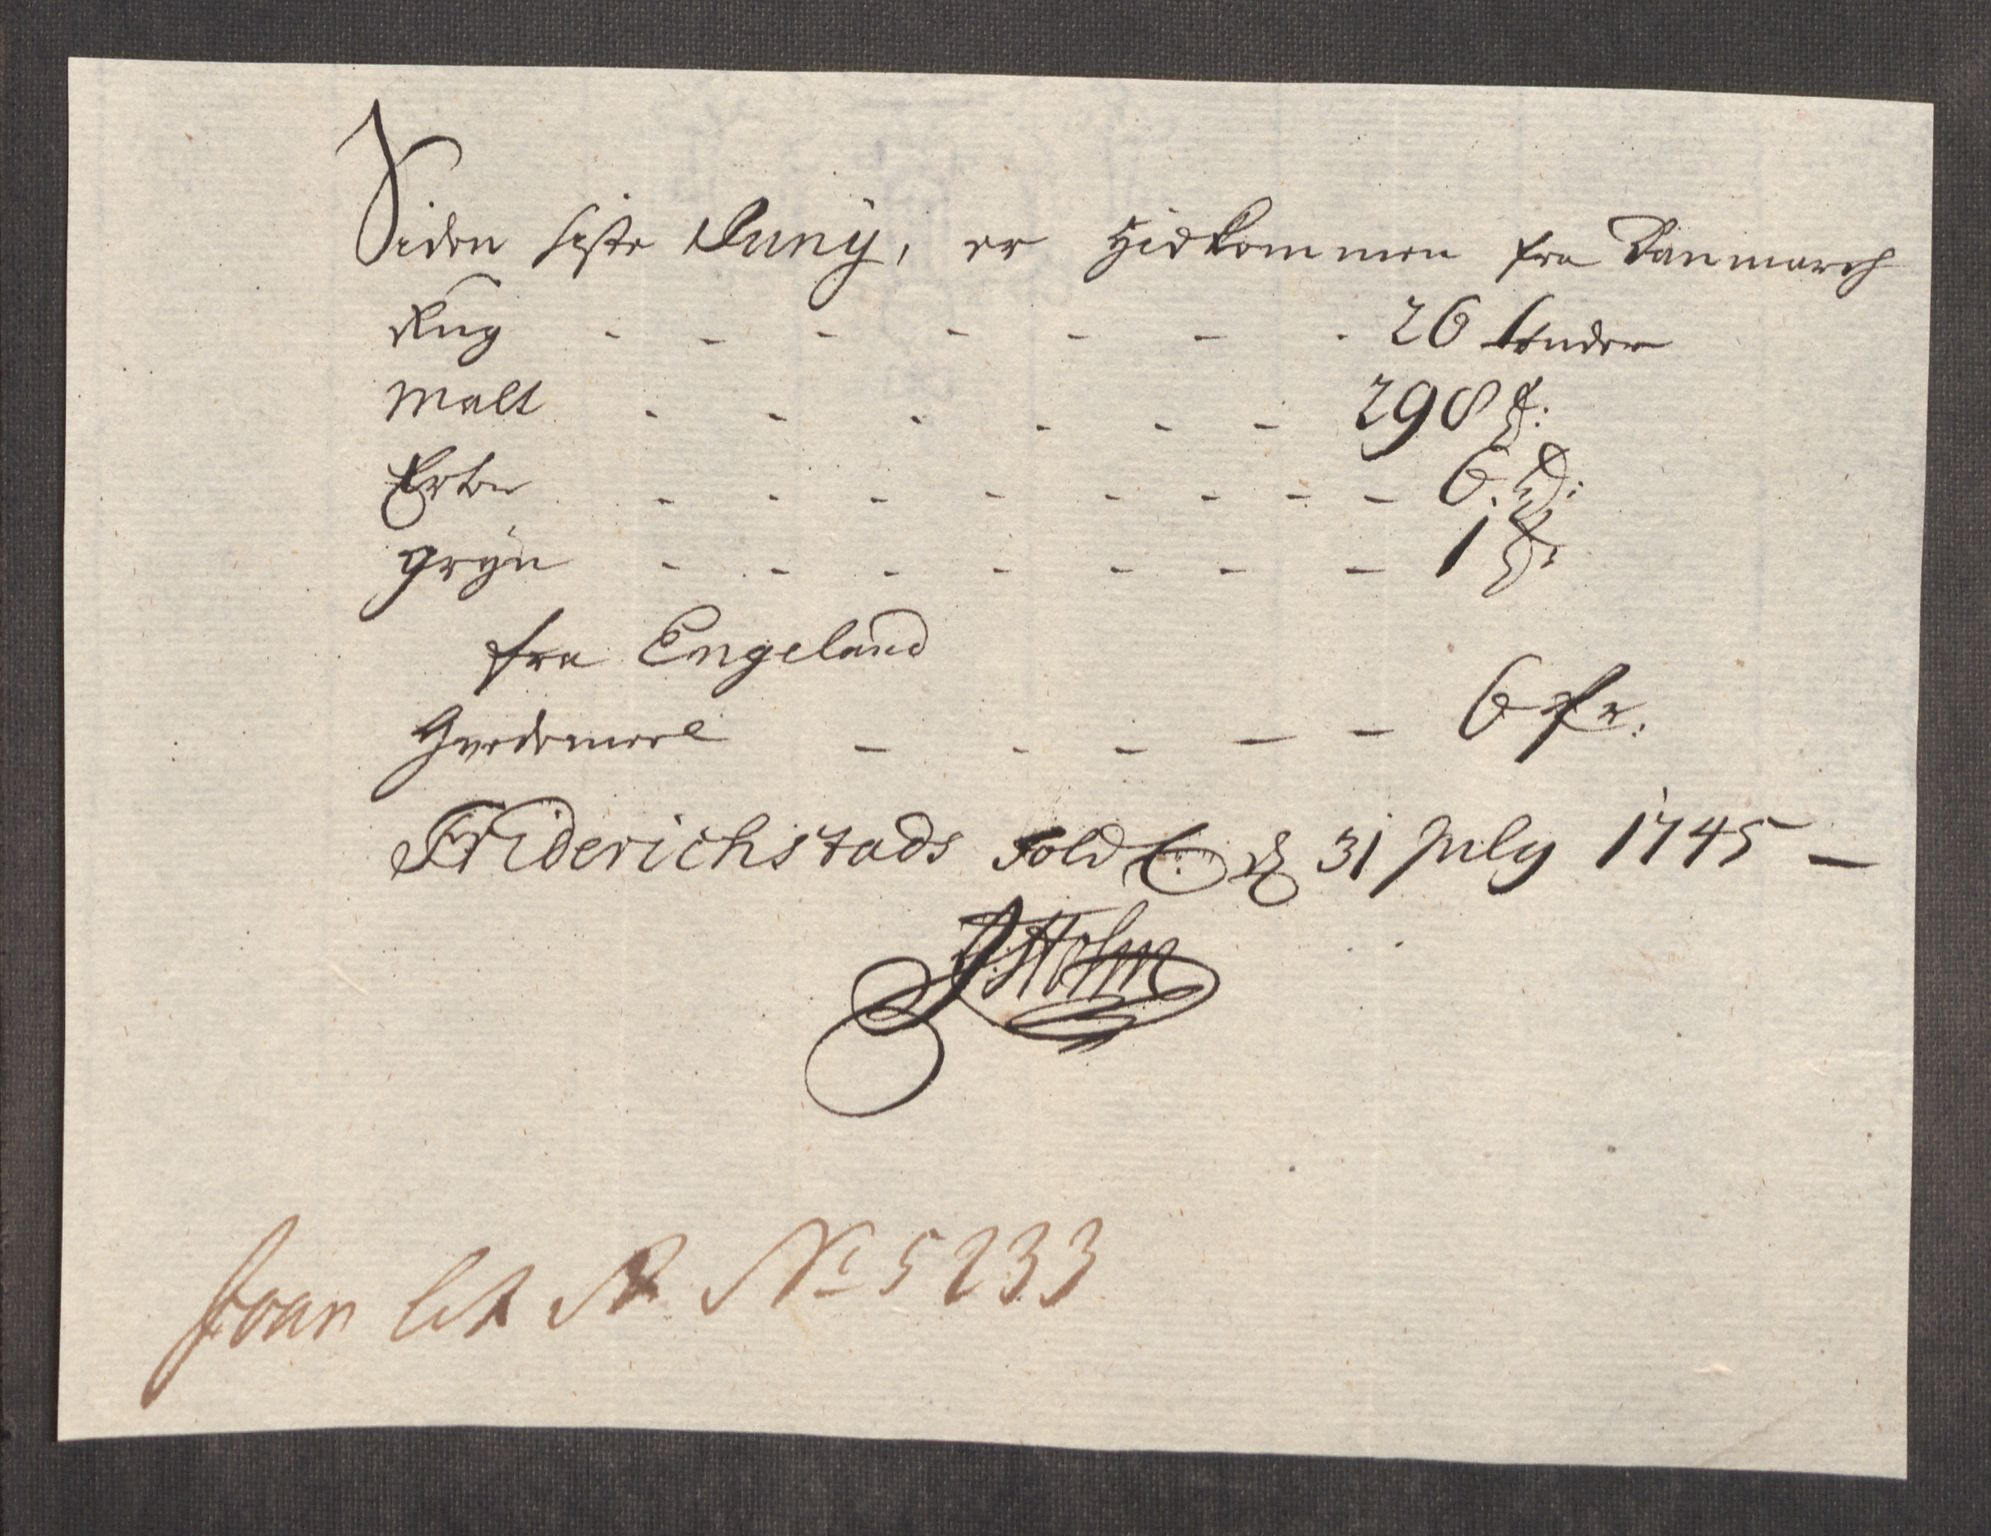 Siden siste Juny, er hidkommen fra Danmarch
Rug - - - - - - - 26 tønder
Malt - - - - - - 298
Erter - - - - - - - - 6.
gryn - - - - - - - 1
fra Engeland
Hvedemeel - - - - - 6
Friderichstads Told C: d 31 July 1745 -
J: Holm
No 5233